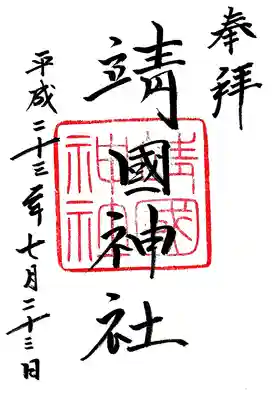 奉拝
靖國神社
平成二十三年七月二十三日
靖國神社